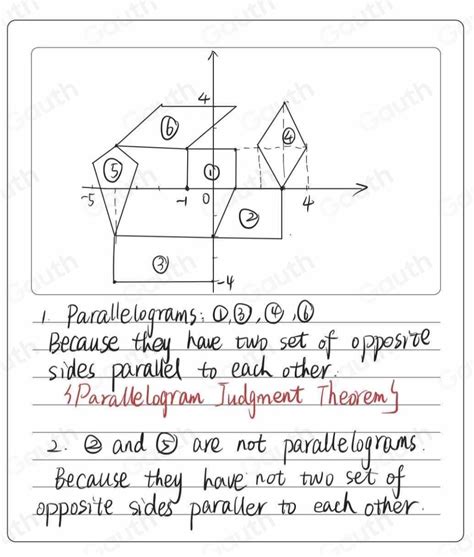 4
⑥
④
⑤
①
-5
-1
0
②
4
③
-4
1. Parallelograms: ①,③,④,⑥
Because they have two set of opposite
sides parallel to each other.
{Parallelogram Judgment Theorem}
2. ② and ⑤ are not parallelograms.
Because they have not two set of
opposite sides paraller to each other.
Gauth